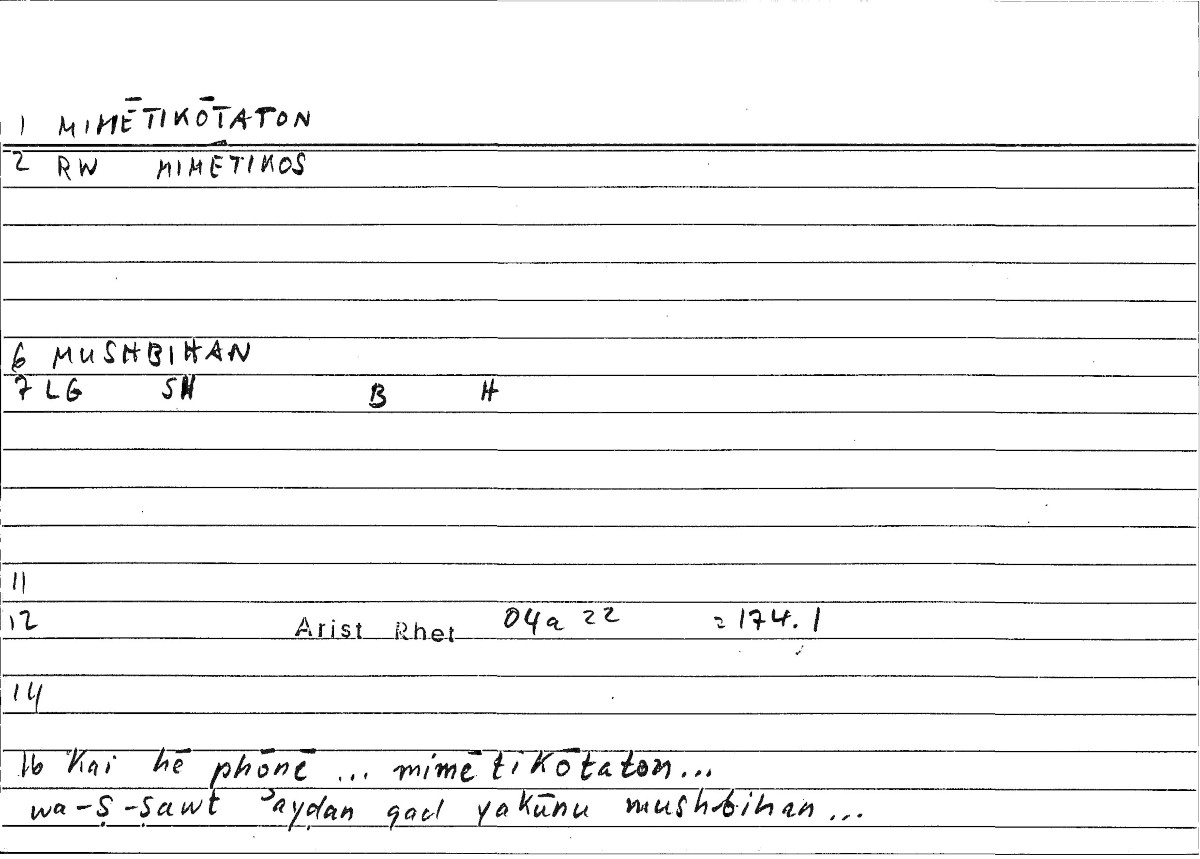 1 MIMĒTIKŌTATON
2 RW MIMETIKOS
6 MUSHBIHAN
7 LG SH B H
11
12 Arist Rhet 04a 22 = 174.1
14
16 Kai hē phōnē ... mimētikōtaton...
wa-ṣ-ṣawt ʾayḍan qad yakūnu mushbihan...